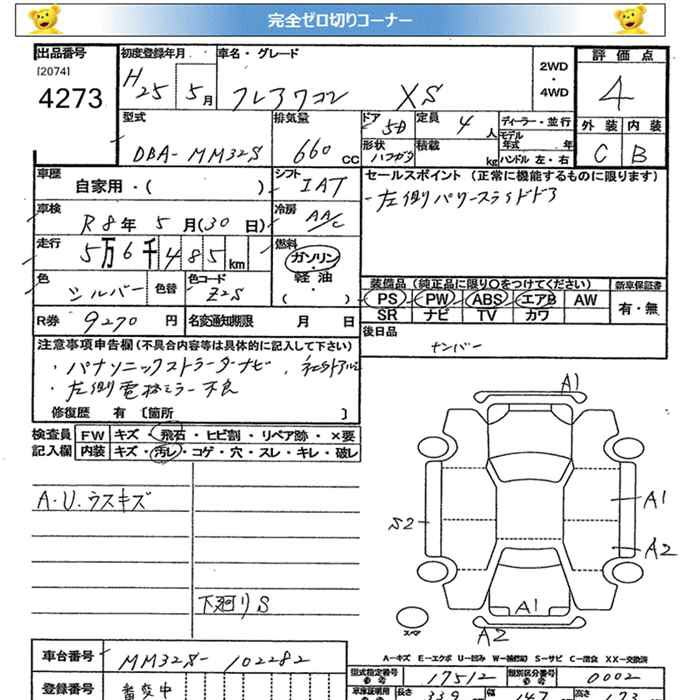 完全ゼロ切りコーナー
出品番号 初度登録年月 車名・グレード 2WD・4WD 評価点
[2074]
4273 H25 5月 フレアワゴン XS 4
型式 排気量 ドア 定員 ディーラー・並行 外装 内装
DBA-MM32S 660cc 5D 4人 モデル年式 年 C B
形状 積載 kg ハンドル 左・右
車歴 自家用・( ) シフト IAT セールスポイント(正常に機能するものに限ります)
車検 R8年5月(30日) 冷房 AA/C 左側パワースライドドア
走行 5万6千485km 燃料 ガソリン・軽油・( )
色 シルバー 色替 色コード Z2S 装備品(純正品に限り○をつけてください) 新車保証書
PS PW ABS エアB AW 有・無
SR ナビ TV カワ
R券 9270円 名変通知期限 月 日 後日品
ナンバー
注意事項申告欄(不具合内容等は具体的に記入して下さい)
・パナソニックストラーダーナビ
・左側電格ミラー不良
修復歴 有 [箇所 ]
検査員記入欄 FW キズ・飛石・ヒビ割・リペア跡・×要
内装 キズ・汚レ・コゲ・穴・スレ・キレ・破レ
A.U.ウスキズ
下廻りS
A1
S2
A1
A2
A1
A2
スペア
A-キズ E-エクボ U-凹み W-補修跡 S-サビ C-腐食 XX-交換済
車台番号 MM32S-102282 型式指定番号 17512 類別区分番号 0002
登録番号 番変中 長さ 339 幅 147 高さ 173